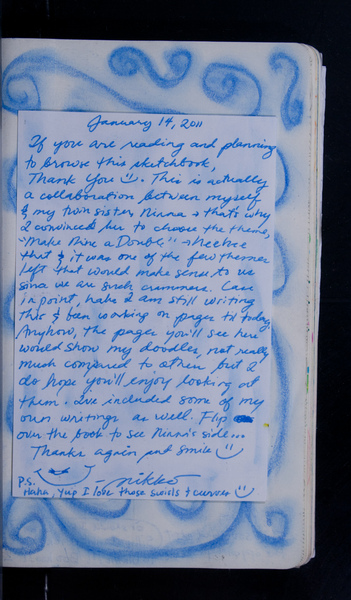 January 14, 2011
If you are reading and planning
to browse this sketchbook,
Thank You :). This is actually
a collaboration between myself
& my twin sister Ninna & that's why
I convinced her to choose the theme,
"Make Mine a Double" → heehee
that & it was one of the few themes
left that would make sense to us
since we are such crammers. Case
in point, haha I am still writing
this & been working on pages til today.
Anyhow, the pages you'll see here
would show my doodles, not really
much compared to others but I
do hope you'll enjoy looking at
them. I've included some of my
own writings as well. Flip
over the book to see Ninna's side...
Thanks again and smile :)
- nikko
P.S.
Haha, yup I love those swirls & curves :)